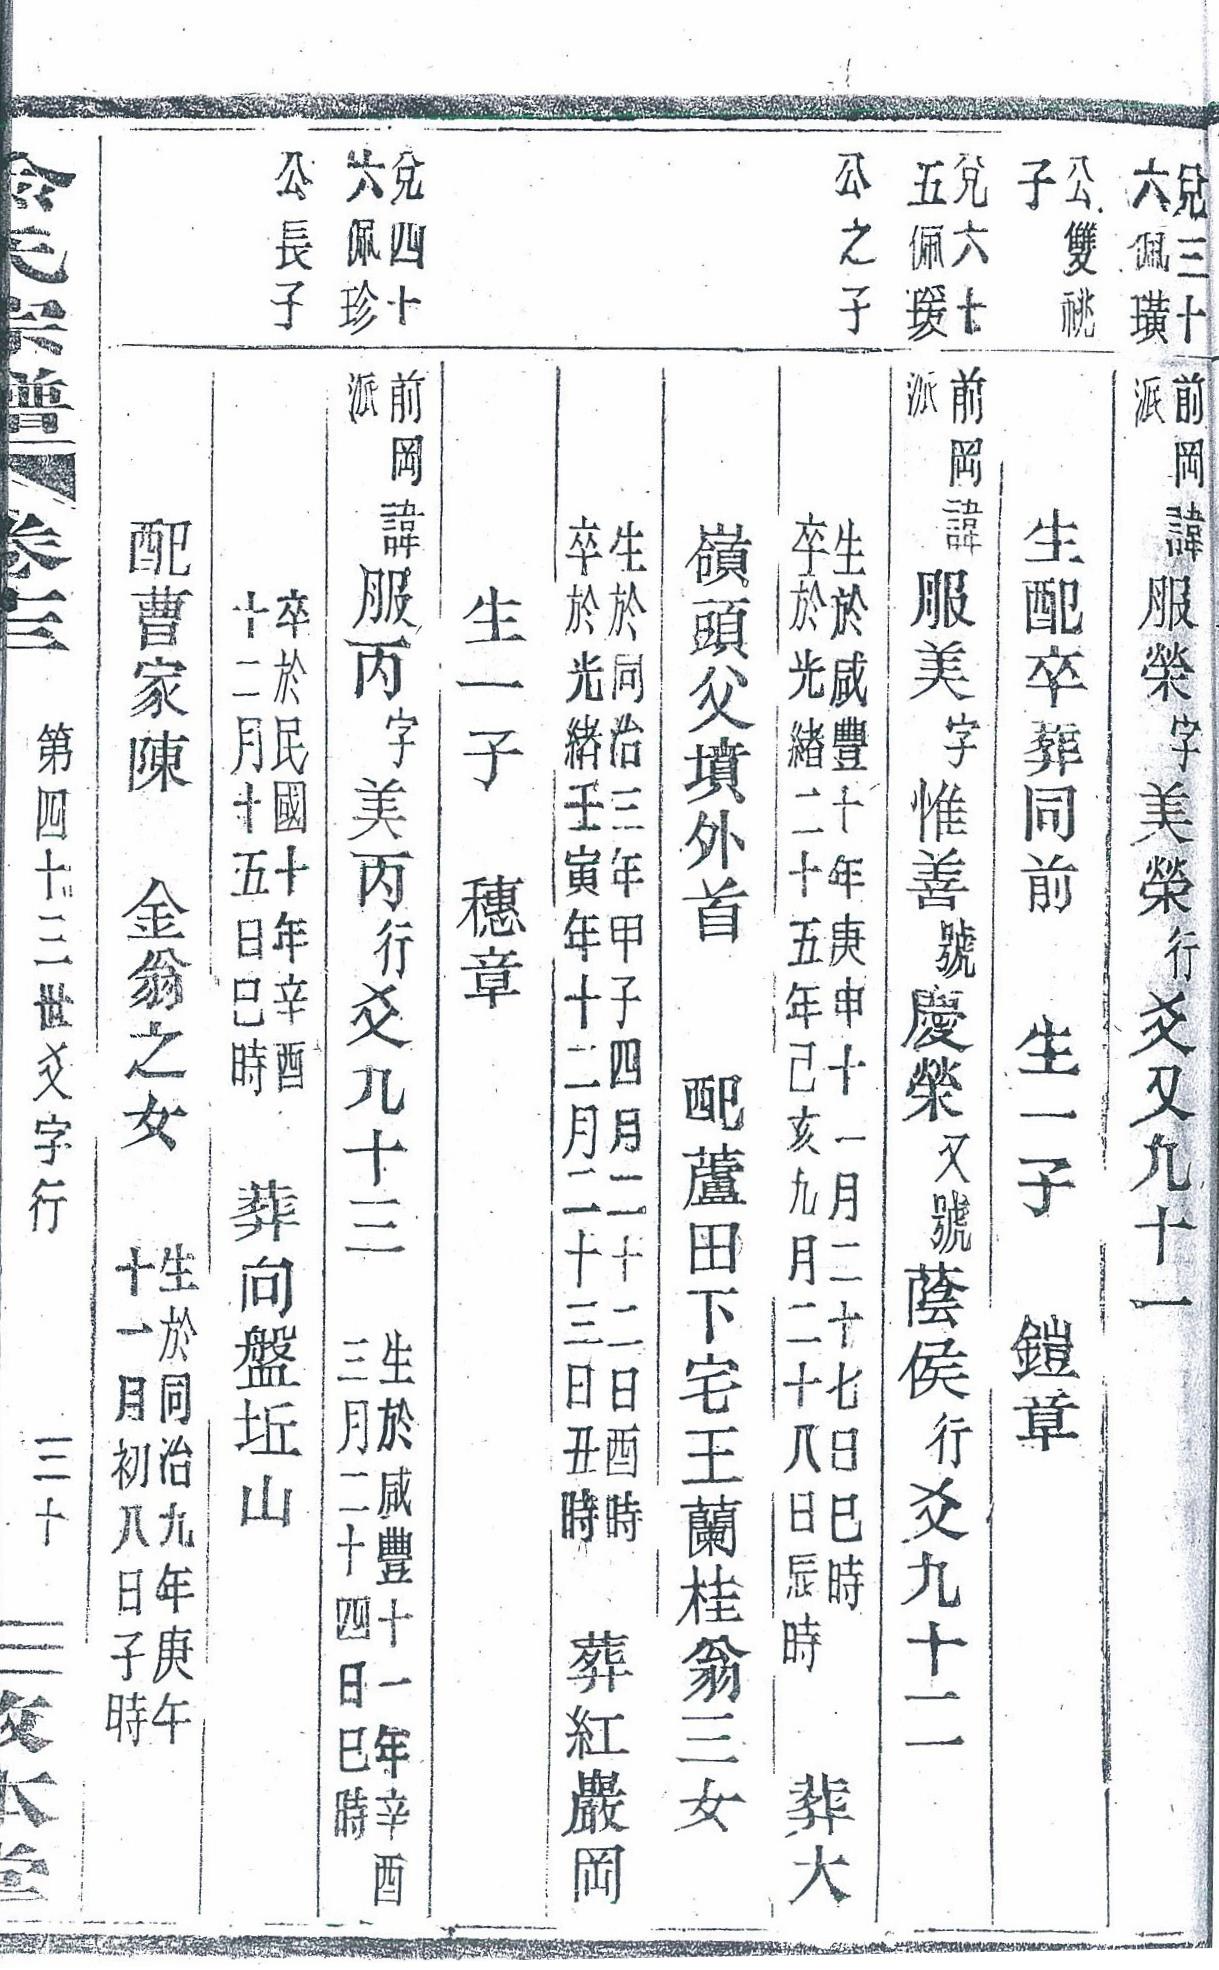 兌三十
六佩璜
公雙祧
子
前岡派諱服榮字美榮行爻又九十一
生配卒葬同前 生一子 鎧章
兌六十
五佩瑗
公之子
前岡派諱服美字惟善號慶榮又號蔭侯行爻九十二
生於咸豐十年庚申十一月二十七日巳時
卒於光緒二十五年己亥九月二十八日辰時
葬大
嶺頭父墳外首 配蘆田下宅王蘭桂翁三女
生於同治三年甲子四月二十二日酉時
卒於光緒壬寅年十二月二十三日丑時
葬紅巖岡
生一子 穗章
兌四十
六佩珍
公長子
前岡派諱服丙字美丙行爻九十三
生於咸豐十一年辛酉
三月二十四日巳時
卒於民國十年辛酉
十二月十五日巳時
葬向盤坵山
配曹家陳 金翁之女
生於同治九年庚午
十一月初八日子時
氏宗譜 卷三 第四十三世爻字行 三十 本堂